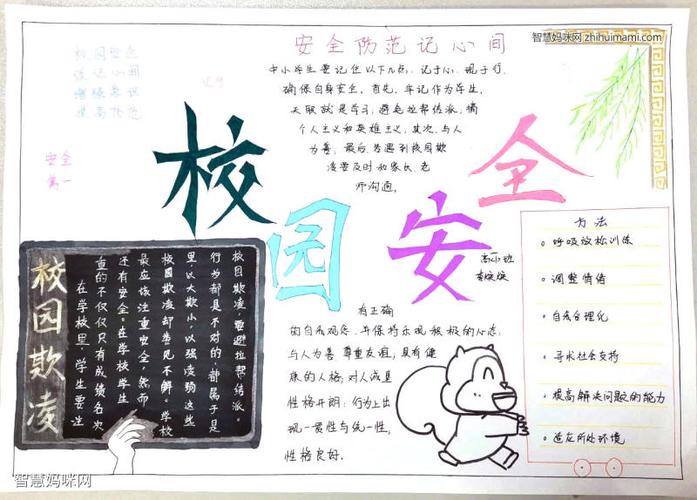 智慧妈咪网 zhihuimami.com
安全防范记心间
校园安全
中小学生要记住以下几点,记于心,现于行,
确保自身安全,首先,牢记作为学生,
天职就是学习,避免拉帮结派,搞
个人主义和英雄主义,其次,与人
为善,最后,当遇到校园欺
凌要及时和家长,老
师沟通。
安全
第一
校园安全
方法
呼吸放松训练
调整情绪
自我合理化
寻求社会支持
提高解决问题的能力
适应所处环境
校园欺凌
在学校里,学生要注
重的不仅仅只有成绩名次
还有安全。在学校学生
最应该注重安全,然而
校园欺凌却常见不鲜。学校
里,以大欺小,以强凌弱这些
行为都是不对的,都属于是
校园欺凌,要避拉帮结派。
有正确
的自我观念,并保持乐观积极的心态,
与人为善,尊重友谊,具有健
康的人格;对人诚恳
性格开朗;行为上出
现一惯性与统一性,
性格良好。
智慧妈咪网